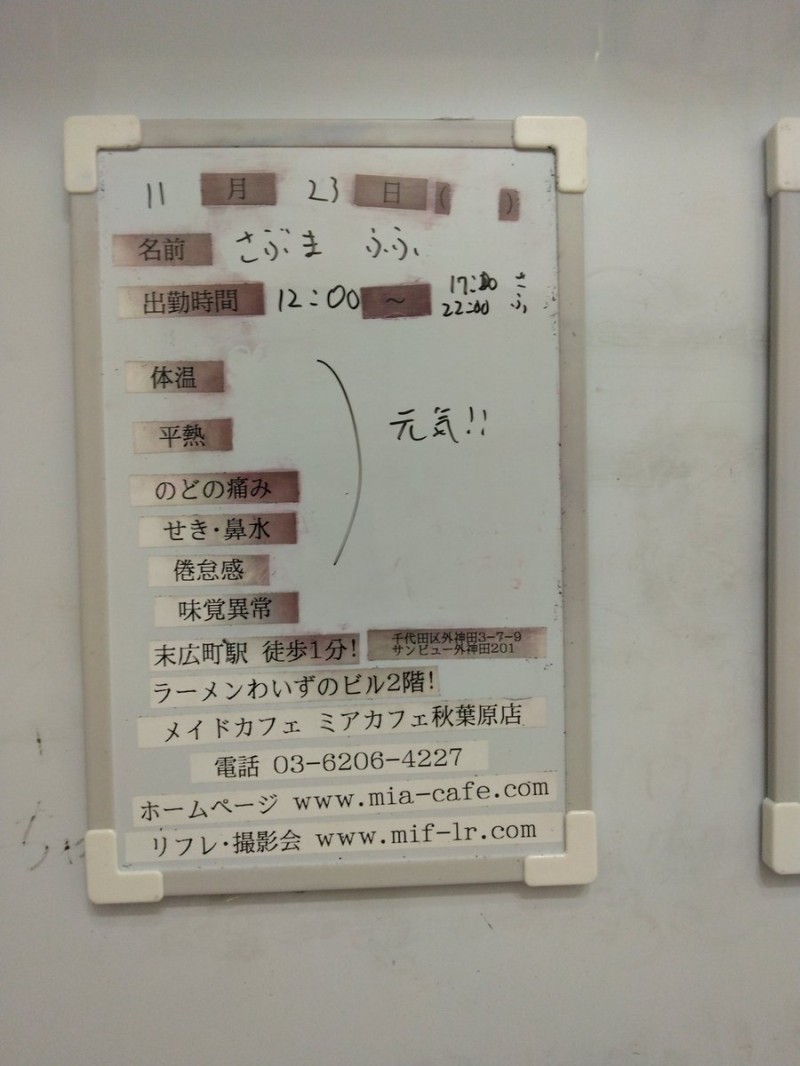 11 月 23 日 ( )
名前 さぶま ふふ
出勤時間 12:00 ～ 17:00 さ
22:00 ふ
体温
平熱
元気!!
のどの痛み
せき・鼻水
倦怠感
味覚異常
末広町駅 徒歩1分! 千代田区外神田3-7-9
サンビュー外神田201
ラーメンわいずのビル2階!
メイドカフェ ミアカフェ秋葉原店
電話 03-6206-4227
ホームページ www.mia-cafe.com
リフレ・撮影会 www.mif-lr.com